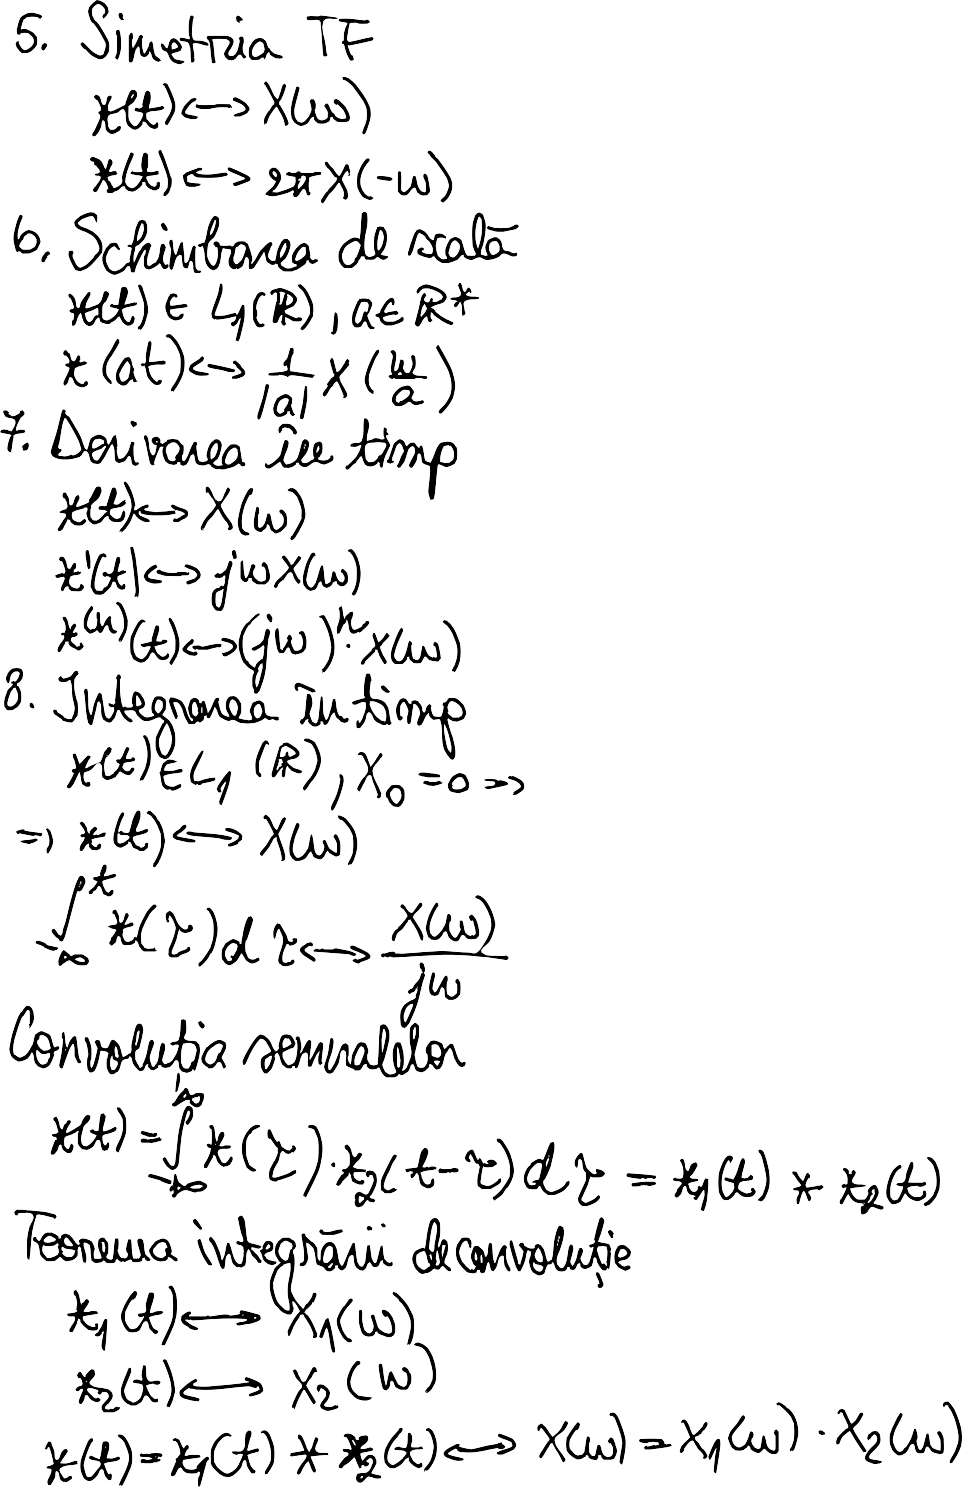 5. Simetria TF
x(t) ↔ X(ω)
x(t) ↔ 2π X(-ω)
6. Schimbarea de scală
x(t) ∈ L₁(ℝ), a ∈ ℝ*
x(at) ↔ 1/|a| X(ω/a)
7. Derivarea în timp
x(t) ↔ X(ω)
x'(t) ↔ jω X(ω)
x⁽ⁿ⁾(t) ↔ (jω)ⁿ · X(ω)
8. Integrarea în timp
x(t) ∈ L₁(ℝ), X₀ = 0 =>
=> x(t) ↔ X(ω)
∫_{-∞}^{t} x(τ)dτ ↔ X(ω)/jω
Convoluția semnalelor
x(t) = ∫_{-∞}^{∞} x(τ)·x₂(t-τ)dτ = x₁(t) * x₂(t)
Teorema integrării de convoluție
x₁(t) ↔ X₁(ω)
x₂(t) ↔ X₂(ω)
x(t) = x₁(t) * x₂(t) ↔ X(ω) = X₁(ω) · X₂(ω)